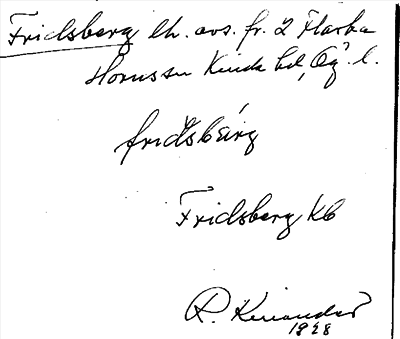 Fridsberg lh. avs. fr. 2 Flarka
Hornssn Kinda hd, Ög. l.
fridsbärg
Fridsberg Kb
R. Kinander
1928